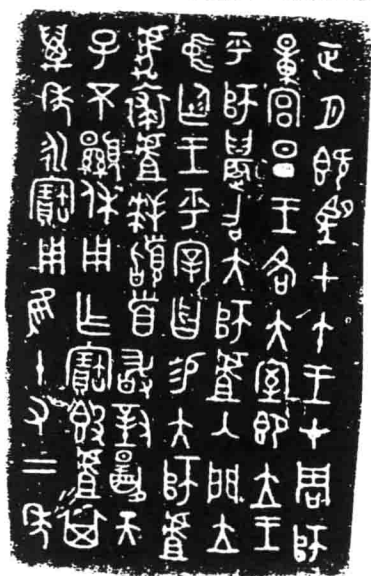 正月既望甲午王才周師
量宮旦王各大室即立王
乎師晨召大師虘入門立
中廷王乎宰曶易大師虘
虎裘虘拜䭫首敢對揚天
子不顯休用乍寶簋虘其
萬年永寶用隹十又二年